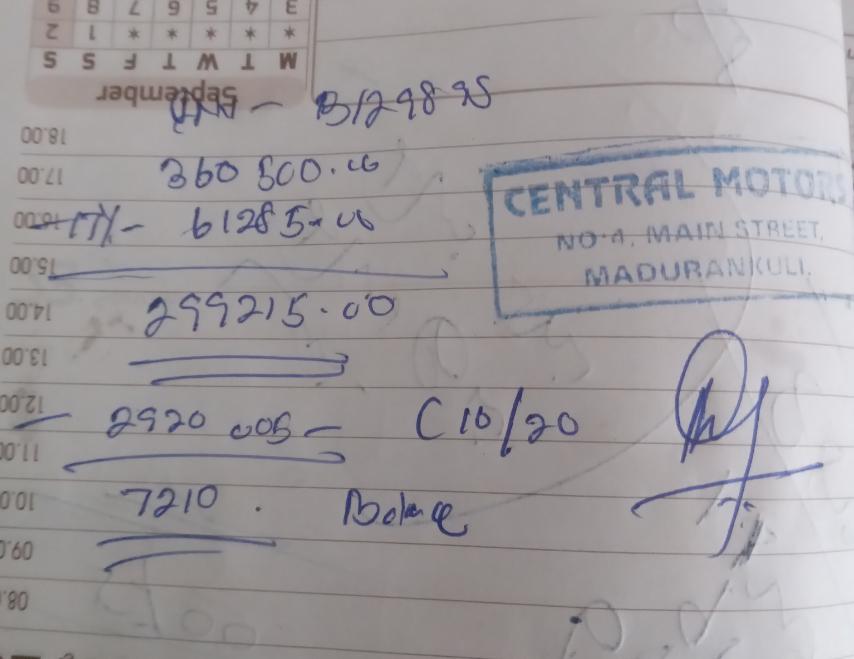 3 4 5 6 7 8 9
* * * * * 1 2
M T W T F S S
September
B129895
18.00
360 500.00
17.00
61285.00
16.00
15.00
299215.00
14.00
13.00
2920 005 - C 10/20
12.00
11.00
7210 . Balance
10.0
09.0
08.
CENTRAL MOTORS
NO.4, MAIN STREET,
MADURANKULI.